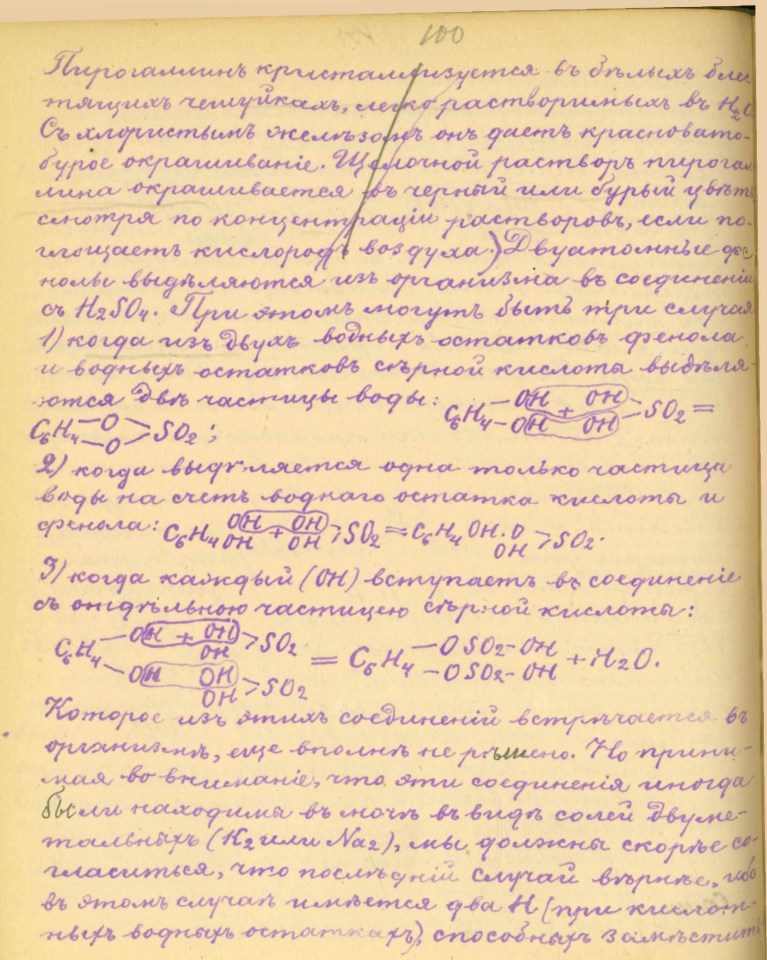 100
Пирогаллинъ кристаллизуется въ бѣлыхъ блес
тящихъ чешуйкахъ, легко растворимыхъ въ H2O
Съ хлористымъ желѣзомъ онъ даетъ красновато-
бурое окрашиваніе. Щелочной растворъ пирогал
лина окрашивается въ черный или бурый цвѣтъ
смотря по концентраціи растворовъ, если по-
глощаетъ кислородъ воздуха.) Двуатомные фе
нолы выдѣляются изъ организма въ соединеніи
съ H2SO4. При этомъ могутъ быть три случая
1) когда изъ двухъ водныхъ остатковъ фенола
и водныхъ остатковъ сѣрной кислоты выдѣля-
ются двѣ частицы воды: C6H4 — OH + OH — OH OH > SO2 =
C6H4 — O — O > SO2;
2) когда выдѣляется одна только частица
воды на счетъ воднаго остатка кислоты и
фенола: C6H4 OH OH + OH OH > SO2 = C6H4 OH.O OH > SO2.
3) когда каждый (OH) вступаетъ въ соединеніе
съ отдѣльною частицею сѣрной кислоты:
C6H4 — OH + OH OH > SO2 — OH OH OH > SO2 = C6H4 — O SO2 - OH — O SO2 - OH + H2O.
Которое изъ этихъ соединеній встрѣчается въ
организмѣ, еще вполнѣ не рѣшено. Но прини-
мая во вниманіе, что эти соединенія иногда
были находимы въ мочѣ въ видѣ солей двуме-
тальныхъ (K2 или Na2), мы должны скорѣе со-
гласиться, что послѣдній случай вѣрнѣе, ибо
въ этомъ случаѣ имѣется два H (при кислот-
ныхъ водныхъ остаткахъ), способныхъ замѣстить